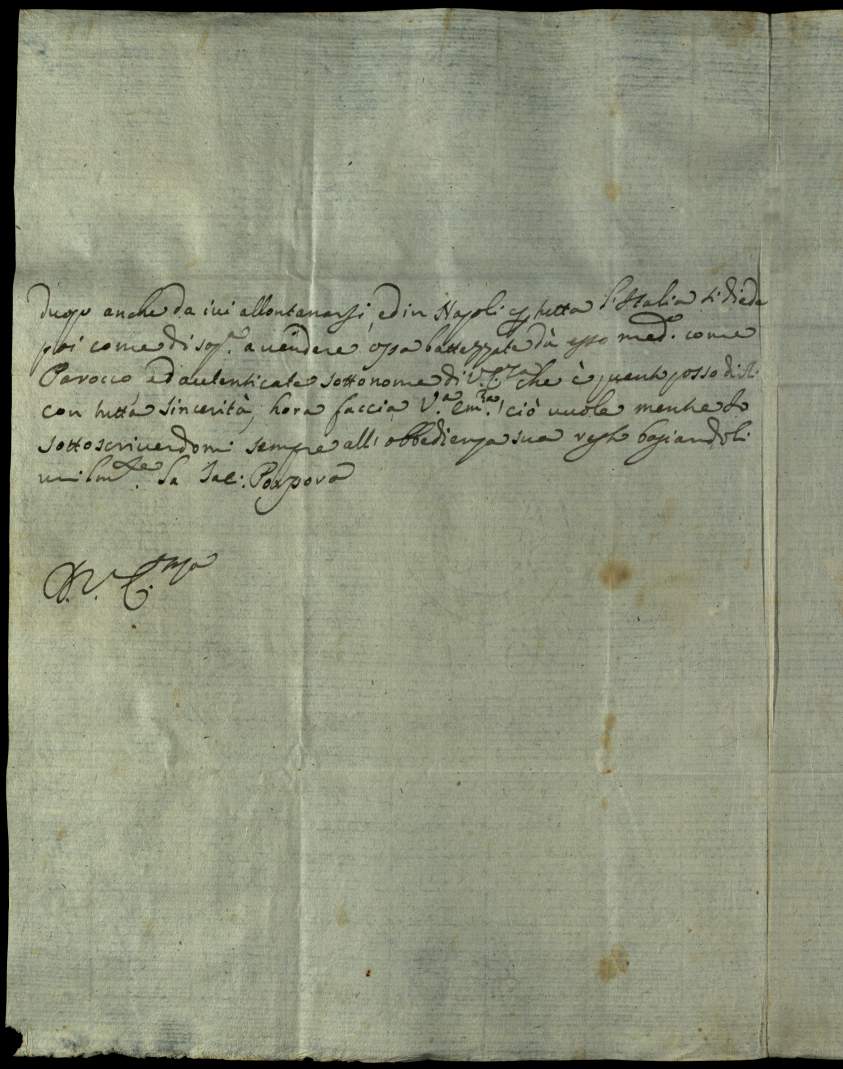 anche da ivi allontanarsi, ed in Napoli e p tutta l'Italia si diede
poi come di sop.ª a vendere ossa battezzate dà esso med.º come
Parocco, ed autenticate sotto nome di V. E.za che è quant posso dirli
con tutta sincerità, hora faccia V.ª Em.za ciò vuole mentre Io
sottoscrivendomi sempre all'obbedienza sua resto bagiandoli
umilm.te la Sac: Porpora
D. V. E.ma